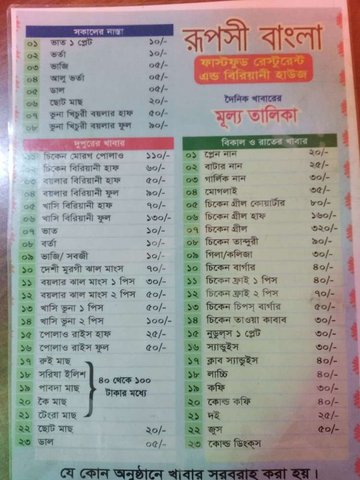 রূপসী বাংলা
ফাস্টফুড রেস্টুরেন্ট
এন্ড বিরিয়ানী হাউজ
দৈনিক খাবারের
মূল্য তালিকা
সকালের নাস্তা
০১ ভাত ১ প্লেট ১০/-
০২ ভর্তা ১০/-
০৩ ভাজি ০৫/-
০৪ আলু ভর্তা ০৫/-
০৫ ডাল ০৫/-
০৬ ছোট মাছ ২০/-
০৭ ভুনা খিচুরী বয়লার হাফ ৫০/-
০৮ ভুনা খিচুরী বয়লার ফুল ৯০/-
দুপুরের খাবার
চিকেন মোরগ পোলাও ১১০/-
চিকেন বিরিয়ানী হাফ ৬০/-
০৩ বয়লার বিরিয়ানী হাফ ৫০/-
০৪ বয়লার বিরিয়ানী ফুল ৯০/-
০৫ খাসি বিরিয়ানী হাফ ৭০/-
০৬ খাসি বিরিয়ানী ফুল ১৩০/-
০৭ ভাত ১০/-
০৮ বর্তা ১০/-
০৯ ভাজি/ সবজী ১০/-
১০ দেশী মুরগী ঝাল মাংস ৭০/-
১১ বয়লার ঝাল মাংস ১ পিস ৩০/-
১২ বয়লার ঝাল মাংস ২ পিস ৫০/-
১৩ খাসি ভুনা ১ পিস ৫০/-
১৪ খাসি ভুনা ২ পিস ১০০/-
১৫ পোলাও রাইস হাফ ২৫/-
১৬ পোলাও রাইস ফুল ৫০/-
১৭ রুই মাছ
১৮ সরিষা ইলিশ
১৯ পাবদা মাছ
২০ কৈ মাছ
২১ টেংরা মাছ
৪০ থেকে ১০০
টাকার মধ্যে
২২ ছোট মাছ ২০/-
২৩ ডাল ০৫/-
বিকাল ও রাতের খাবার
০১ প্লেন নান ২০/-
০২ বাটার নান ২৫/-
০৩ গার্লিক নান ৩০/-
০৪ মোগলাই ৩৫/-
০৫ চিকেন গ্রীল কোয়ার্টার ৮০/-
০৬ চিকেন গ্রীল হাফ ১৬০/-
০৭ চিকেন গ্রীল ৩২০/-
০৮ চিকেন তান্দুরী ৯০/-
০৯ গিলা/কলিজা ৩০/-
১০ চিকেন বার্গার ৪০/-
১১ চিকেন ফ্রাই ১ পিস ৪০/-
১২ চিকেন ফ্রাই ২ পিস ৭০/-
১৩ চিকেন চিপস্ বার্গার ৫০/-
১৪ চিকেন তাওয়া কাবাব ৩০/-
১৫ নুডুলস ১ প্লেট ৩০/-
১৬ স্যান্ডুইস ৩০/-
১৭ ক্লাব স্যান্ডুইস ৪০/-
১৮ লাচ্চি ৪০/-
১৯ কফি ৩০/-
২০ কোল্ড কফি ৪০/-
২১ দই ২৫/-
২২ জুস ৫০/-
২৩ কোল্ড ড্রিংকস
যে কোন অনুষ্ঠানে খাবার সরবরাহ করা হয়।